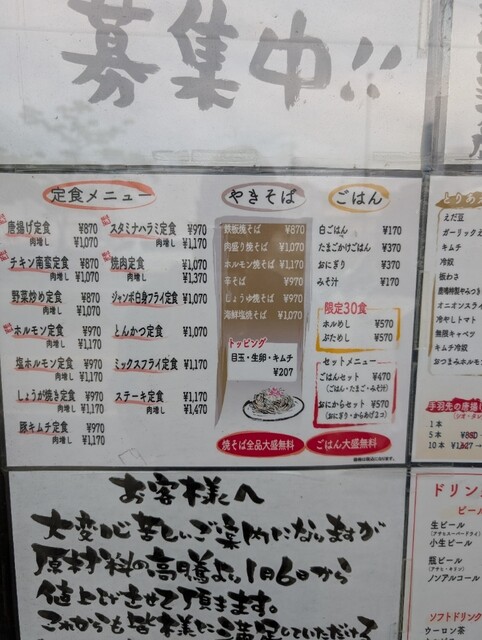 募集中!!
定食メニュー
唐揚げ定食 ¥870
肉増し ¥1,070
チキン南蛮定食 ¥870
肉増し ¥1,070
野菜炒め定食 ¥870
肉増し ¥1,070
ホルモン定食 ¥970
肉増し ¥1,170
塩ホルモン定食 ¥970
肉増し ¥1,170
しょうが焼き定食 ¥970
肉増し ¥1,170
豚キムチ定食 ¥970
肉増し ¥1,170
スタミナハラミ定食 ¥970
肉増し ¥1,170
焼肉定食 ¥1,070
肉増し ¥1,370
ジャンボ白身フライ定食 ¥1,070
とんかつ定食 ¥1,070
ミックスフライ定食 ¥1,170
ステーキ定食 ¥1,170
肉増し ¥1,470
やきそば
鉄板焼そば ¥870
肉盛り焼そば ¥1,070
ホルモン焼そば ¥1,170
辛そば ¥970
しょうゆ焼そば ¥970
海鮮塩焼そば ¥1,070
トッピング
目玉・生卵・キムチ
¥207
焼そば全品大盛無料
ごはん
白ごはん ¥170
たまごかけごはん ¥370
おにぎり ¥370
みそ汁 ¥170
限定30食
ホルめし ¥570
ぶためし ¥570
セットメニュー
ごはんセット ¥470
(ごはん・たまご・みそ汁)
おにからセット ¥570
(おにぎり・からあげ2コ)
ごはん大盛無料
えだ豆
キムチ
冷奴
板わさ
冷やしトマト
無限キャベツ
キムチ冷奴
1本
5本
10本
お客様へ
大変心苦しいご案内になりますが
原材料の高騰より1月6日から
値上げさせて頂きます。
これからも皆様に満足していただけ
ドリン
ビー
生ビール
(アサヒスーパードライ)
小生ビール
瓶ビール
(アサヒ・キリン)
ノンアルコール
ソフトドリン
ウーロン茶